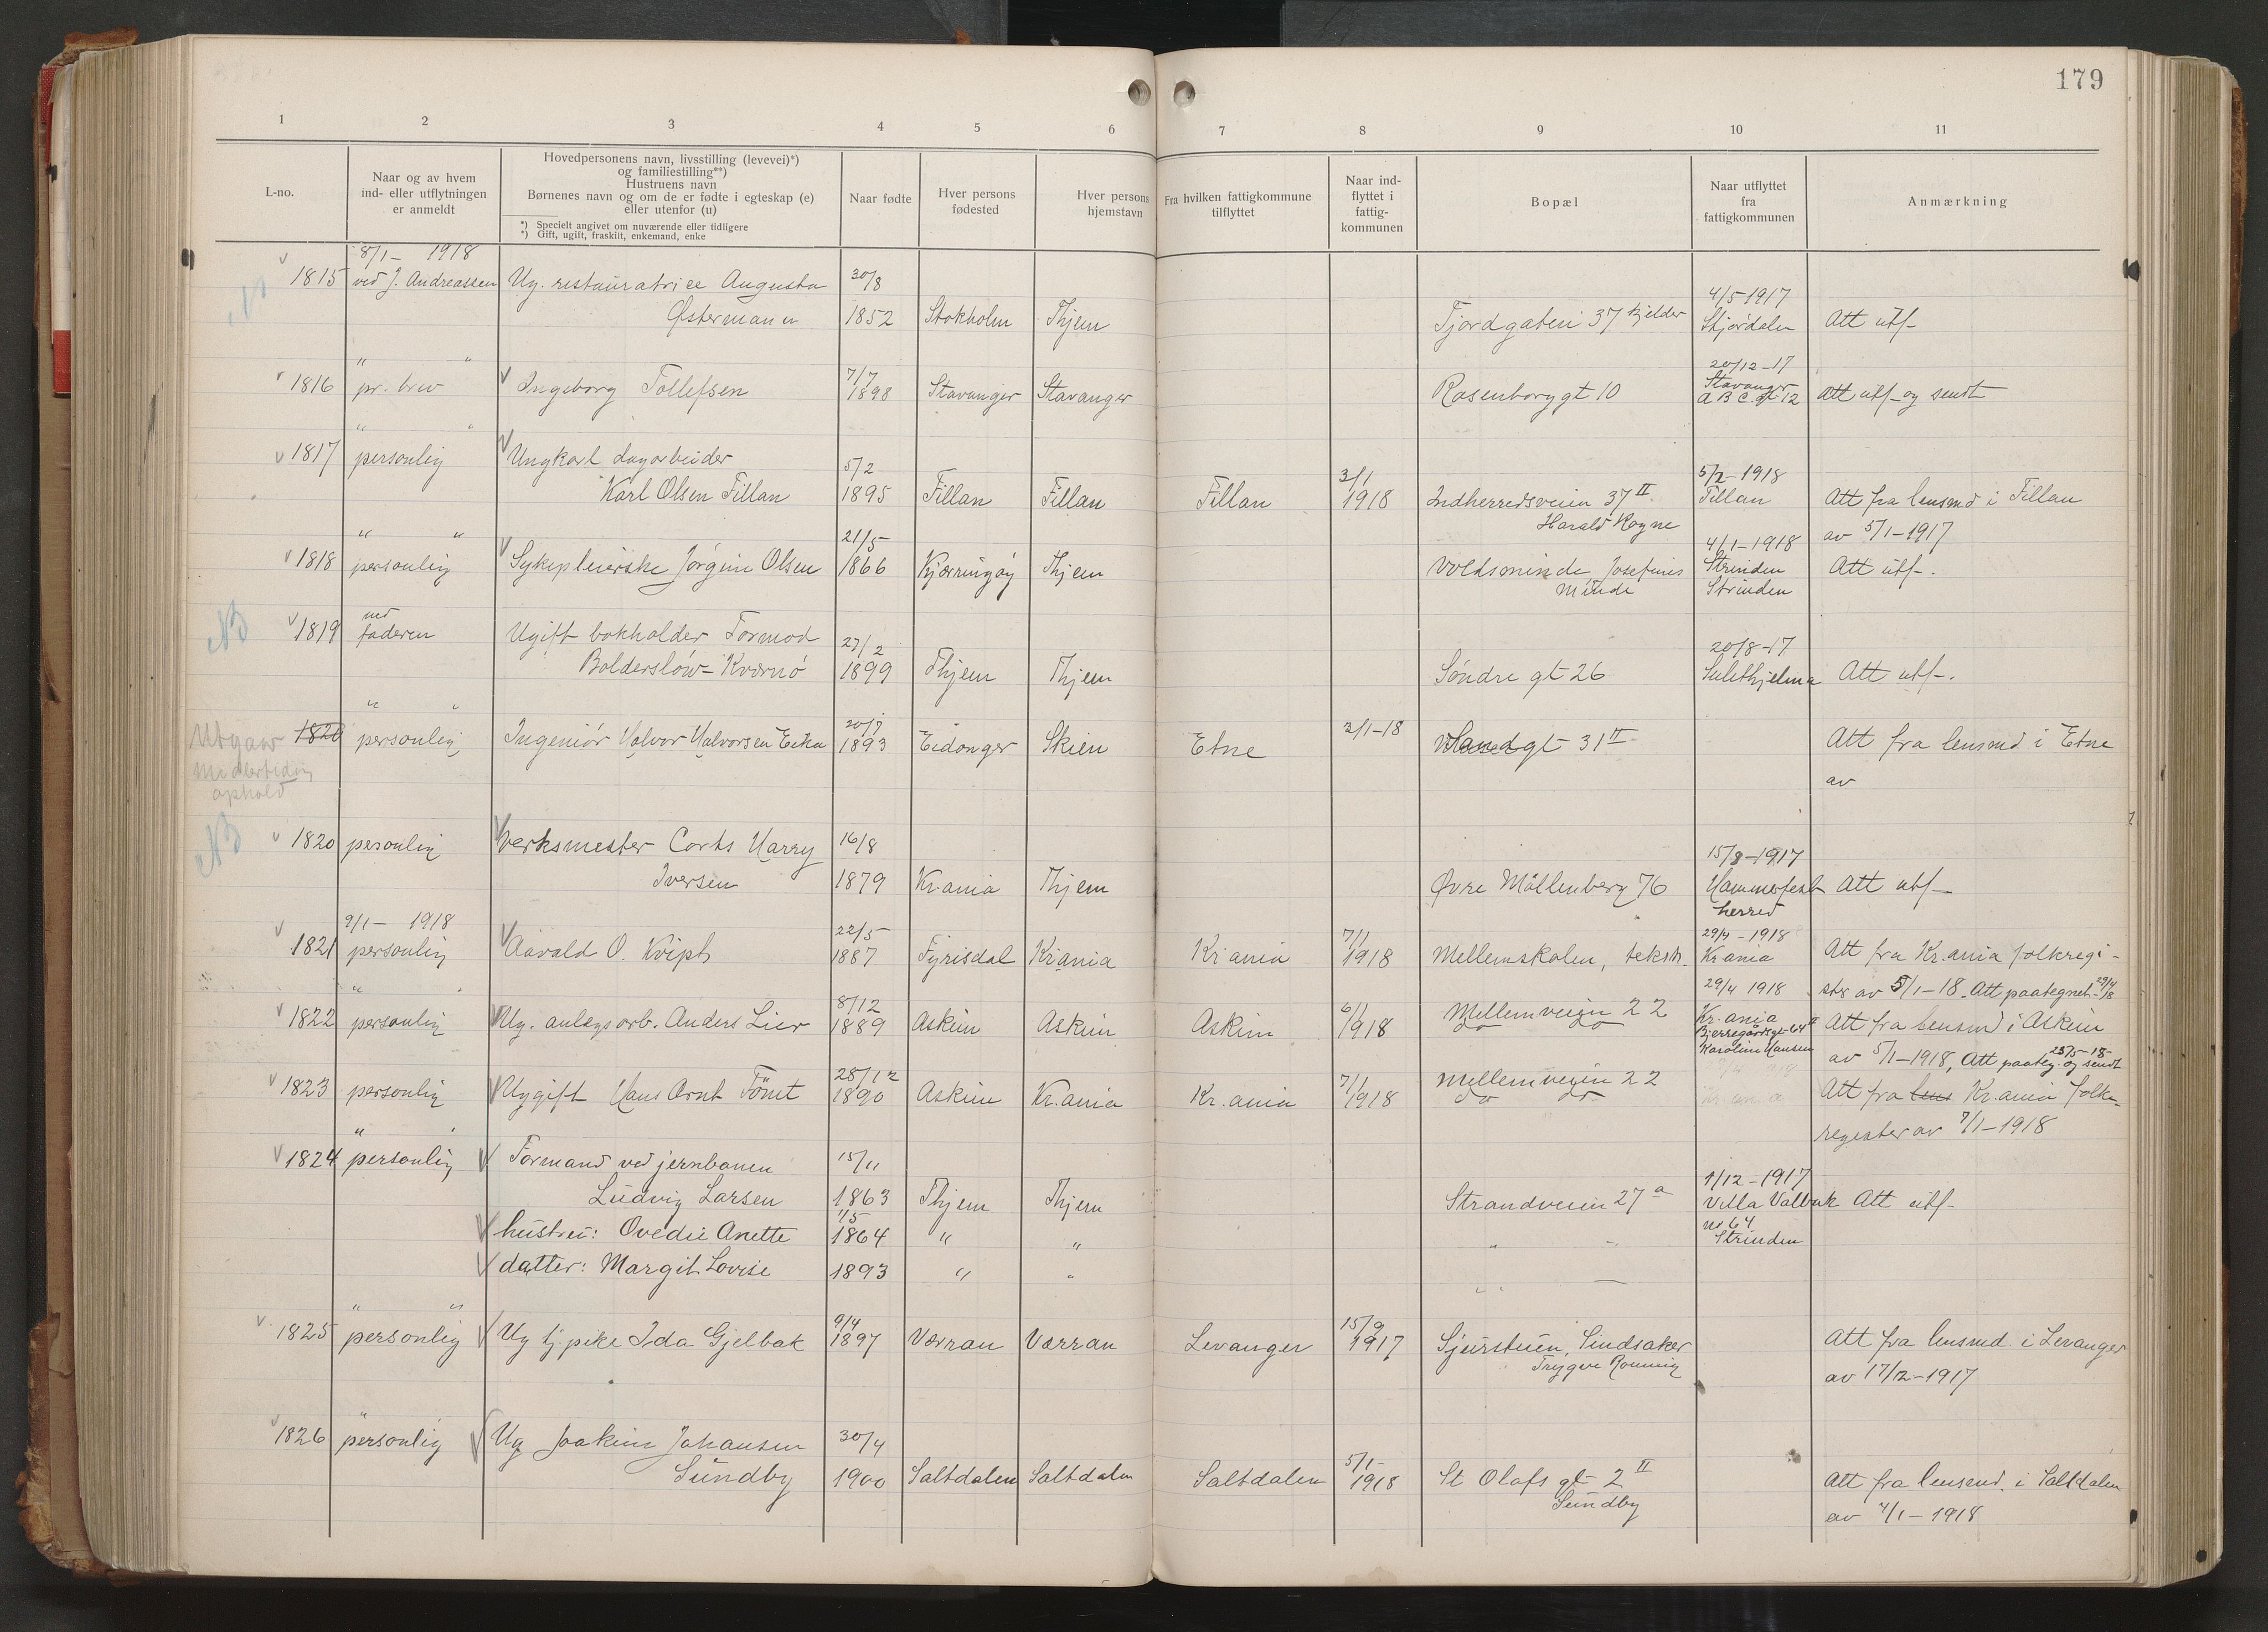 179
1 2 3 4 5 6 7 8 9 10 11
L-no.
Naar og av hvem
ind- eller utflytningen
er anmeldt
Hovedpersonens navn, livsstilling (levevei)*)
og familiestilling**)
Hustruens navn
Børnenes navn og om de er fødte i egteskap (e)
eller utenfor (u)
*) Specielt angivet om nuværende eller tidligere
*) Gift, ugift, fraskilt, enkemand, enke
Naar fødte
Hver persons
fødested
Hver persons
hjemstavn
Fra hvilken fattigkommune
tilflyttet
Naar ind-
flyttet i
fattig-
kommunen
Bopæl
Naar utflyttet
fra
fattigkommunen
Anmærkning
8/1- 1918
1815 ved J. Andreassen Ug. restauratrice Augusta 30/8 4/5 1917
Østermann 1852 Stokholm Thjem Fjordgaten 37 kjelder Stjørdalen Att utf-
" " 20/12-17
1816 pr. brev Ingeborg Tollefsen 7/7 1898 Stavanger Stavanger Rosenborg gt 10 Stavanger A B C gt 12 Att utf- og sendt
" "
1817 personlig Ungkarl dagarbeider 5/2 3/1 5/2-1918
Karl Olsen Fillan 1895 Fillan Fillan Fillan 1918 Indherredsveien 37 II Fillan Att fra lensmd i Fillan
Harald Rogne av 5/1-1917
" " 21/5 4/1-1918
1818 personlig Sykepleierske Jørgine Olsen 1866 Kjærringøy Thjem Voldsminde Josefines Strinden Att utf-.
Minde Strinden
NB 1819 ved faderen Ugift bokholder Tormod 27/2 20/8-17
Bolderslöw-Kværnö 1899 Thjem Thjem Søndre gt 26 Sulithjelma Att utf-.
" "
Utgaar 1820 personlig Ingeniör Halvor Halvorsen Eika 20/7 1893 Eidanger Skien Etne 3/1-18 Sandgt 31 II Att fra lensmd i Etne
Midlertidig
ophold av
NB 1820 personlig Verksmester Corts Harry 16/8 15/8-1917
Iversen 1879 Kr.ania Thjem Øvre Möllenberg 76 Hammerfest Att utf-
herred
9/1- 1918 22/5 7/1 29/4-1918
1821 personlig Aavald O. Kvipt 1887 Fyrisdal Kr.ania Kr.ania 1918 Mellemskolen, Kr.ania Att fra Kr.ania folkregi-
" 8/12 6/1 29/4 1918 ster av 5/1-18. Att paategnet 29/4 18
1822 personlig Ug. anlegsarb. Anders Lier 1889 Askim Askim Askim 1918 Mellemveien 22 Kr.ania Att fra lensmd i Askim
do do Bjerregårdsgt 64 II
Karoline Hansen av 5/1-1918, Att paateg. og sendt 23/5-18
1823 personlig Ugift Hans Arnt Tömt 28/12 1890 Askim Kr.ania Kr.ania 7/1 1918 Mellemveien 22 Att fra lens Kr.ania folke-
do do register av 7/1-1918
"
1824 personlig Formand ved jernbanen 15/11 1/12-1917
Ludvig Larsen 1863 Thjem Thjem Strandveien 27 a Villa Valbak Att utf-
hustru: Ovedie Anette 1/5 1864 " " " " no 64 Strinden
datter: Margit Lovise 1893 " "
" "
1825 personlig Ug tj.pike Ida Gjelbak 9/4 1897 Værran Værran Levanger 15/9 1917 Sjursteien, Lindsaker Att fra lensmd. i Levanger
Trygve Ronning av 17/12-1917
"
1826 personlig Ug Joakim Johansen 30/4 5/1-
Sundby 1900 Saltdalen Saltdalen Saltdalen 1918 St Olafs gt 2 II Att fra lensmd. i Saltdalen
Sundby av 4/1-1918